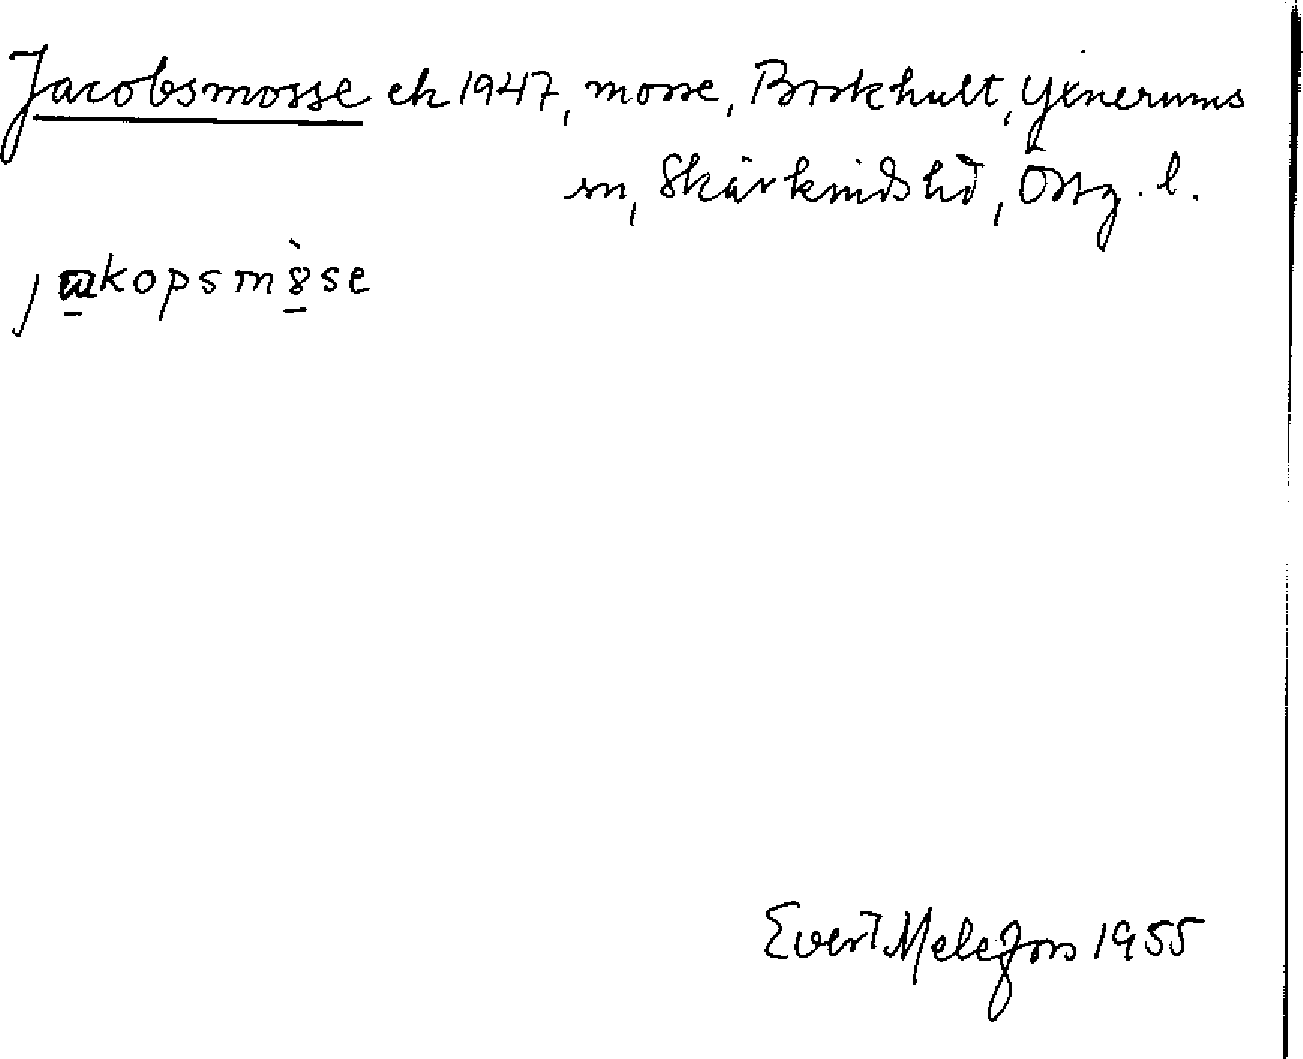 Jacobsmosse ek 1947, mosse, Broskhult, Yxnerums
sn, Skärkinds hd, Östg. l.
jɯkopsmòse
Evert Melefors 1955